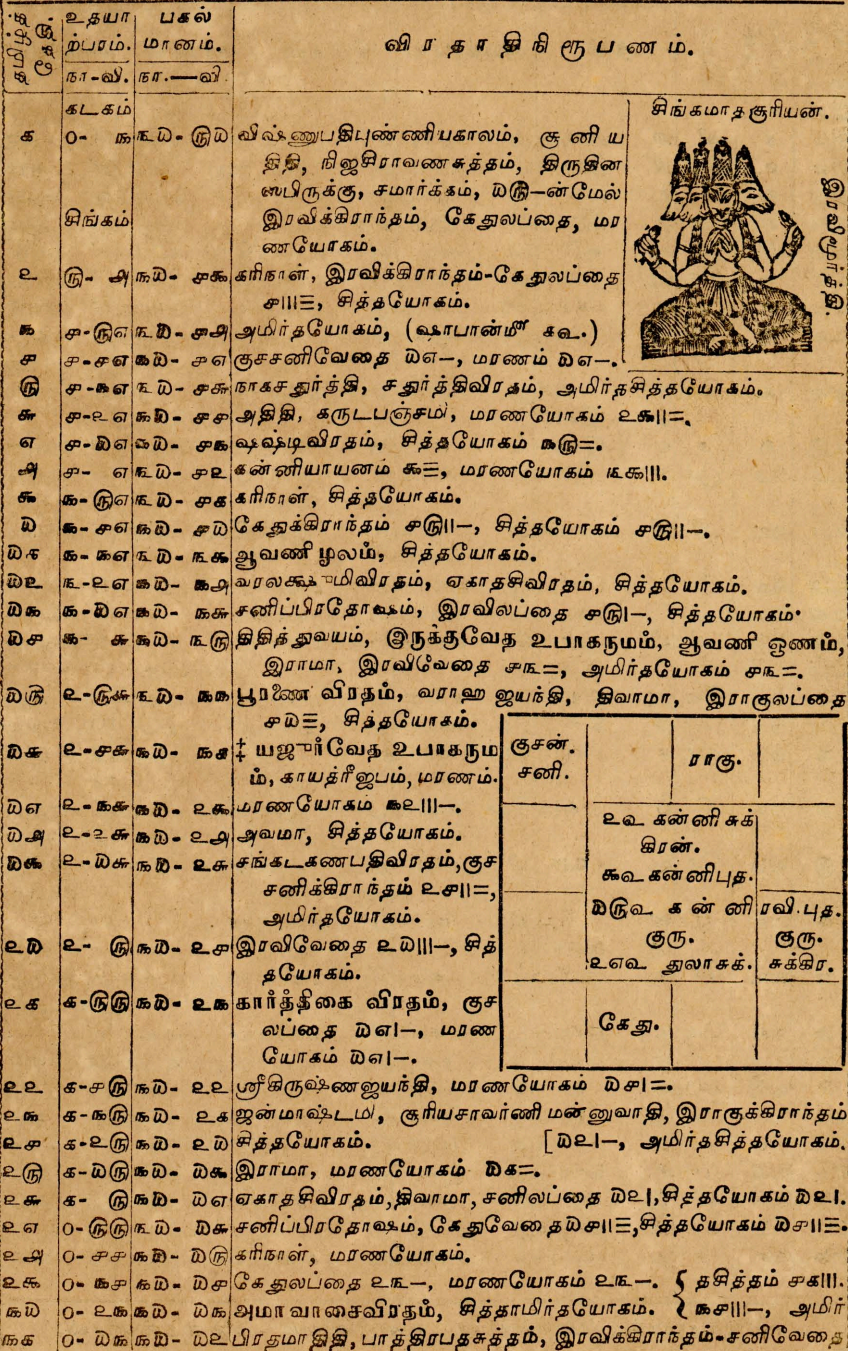 தமிழ்த் தேதி.
உதயாற்பரம். பகல்மானம். விரதாதிநிரூபணம்.
நா-வி. நா.—வி.
கடகம்
சிங்கமாதசூரியன்.
க ௦- ௩ ௩௰-௫௰ விஷ்ணுபதிபுண்ணியகாலம், சூனிய
திதி, நிஜசிராவணசுத்தம், திருதின
ஸ்பிருக்கு, சமார்க்கம், ௰௫—ன்மேல்
சிங்கம் இரவிக்கிராந்தம், கேதுலப்தை, மர
ணயோகம்.
௨ ௫-௮ ௩௰-௪௯ கரிநாள், இரவிக்கிராந்தம்-கேதுலப்தை
௪|||☰, சித்தயோகம்.
௩ ௪-௫௭ ௩௰-௪௮ அமிர்தயோகம், (ஷாபான்மீ ௧௳.)
௪ ௪-௪௭ ௩௰-௪௭ குசசனிவேதை ௰௭—, மரணம் ௰௭—.
௫ ௪-௩௭ ௩௰-௪௬ நாகசதுர்த்தி, சதுர்த்திவிரதம், அமிர்தசித்தயோகம்.
௬ ௪-௨௭ ௩௰-௪௪ அதிதி, கருடபஞ்சமி, மரணயோகம் ௨௯||=.
௭ ௪-௰௭ ௩௰-௪௩ ஷஷ்டிவிரதம், சித்தயோகம் ௩௫=.
௮ ௪- ௭ ௩௰-௪௨ கன்னியாயனம் ௯☰, மரணயோகம் ௩௯|||.
௯ ௩-௫௭ ௩௰-௪௧ கரிநாள், சித்தயோகம்.
௰ ௩-௪௭ ௩௰-௪௰ கேதுக்கிராந்தம் ௪௫||—, சித்தயோகம் ௪௫||—.
௰௧ ௩-௩௭ ௩௰-௩௯ ஆவணி மூலம், சித்தயோகம்.
௰௨ ௩-௨௭ ௩௰-௩௮ வரலக்ஷுமிவிரதம், ஏகாதசிவிரதம், சித்தயோகம்.
௰௩ ௩-௰௭ ௩௰-௩௬ சனிப்பிரதோஷம், இரவிலப்தை ௪௫|—, சித்தயோகம்.
௰௪ ௩- ௬ ௩௰-௩௫ திதித்துவயம், இருக்குவேத உபாகருமம், ஆவணி ஓணம்,
இராமா, இரவிவேதை ௪௩=, அமிர்தயோகம் ௪௩=.
௰௫ ௨-௫௬ ௩௰-௩௩ பூரணை விரதம், வராஹ ஜயந்தி, திவாமா, இராகுலப்தை
௪௰☰, சித்தயோகம்.
௰௬ ௨-௪௬ ௩௰-௩௧ ‡ யஜுர்வேத உபாகரும
ம், காயத்ரீஜபம், மரணம்.
௰௭ ௨-௩௬ ௩௰-௨௯ மரணயோகம் ௩௨|||—.
௰௮ ௨-௨௬ ௩௰-௨௮ அவமா, சித்தயோகம்.
௰௯ ௨-௰௬ ௩௰-௨௬ சங்கடகணபதிவிரதம், குச
சனிக்கிராந்தம் ௨௪||=,
அமிர்தயோகம்.
௨௰ ௨- ௫ ௩௰-௨௪ இரவிவேதை ௨௰|||—, சித்
தயோகம்.
௨௧ ௧-௫௫ ௩௰-௨௩ கார்த்திகை விரதம், குச
லப்தை ௰௭|—, மரண
யோகம் ௰௭|—.
குசன். சனி.
ராகு.
௨௳ கன்னிசுக்
கிரன்.
௯௳ கன்னிபுத.
௰௫௳ கன்னி
குரு.
௨௭௳ துலாசுக்.
ரவி.புத.
குரு.
சுக்கிர.
கேது.
௨௨ ௧-௪௫ ௩௰-௨௨ ஸ்ரீகிருஷ்ணஜயந்தி, மரணயோகம் ௰௪|=.
௨௩ ௧-௩௫ ௩௰-௨௧ ஜன்மாஷ்டமி, சூரியசாவர்ணி மன்னுவாதி, இராகுக்கிராந்தம்
௨௪ ௧-௨௫ ௩௰-௨௰ சித்தயோகம். [௰௨|—, அமிர்தசித்தயோகம்.
௨௫ ௧-௰௫ ௩௰-௰௯ இராமா, மரணயோகம் ௰௧=.
௨௬ ௧- ௫ ௩௰-௰௭ ஏகாதசிவிரதம், திவாமா, சனிலப்தை ௰௨|, சித்தயோகம் ௰௨|.
௨௭ ௦-௫௫ ௩௰-௰௬ சனிப்பிரதோஷம், கேதுவேதை ௰௪||☰, சித்தயோகம் ௰௪||☰.
௨௮ ௦-௪௪ ௩௰-௰௫ கரிநாள், மரணயோகம்.
௨௯ ௦-௩௪ ௩௰-௰௪ கேதுலப்தை ௨௩—, மரணயோகம் ௨௩—. { தசித்தம் ௪௧|||.
௩௰ ௦-௨௩ ௩௰-௰௩ அமாவாசைவிரதம், சித்தாமிர்தயோகம். { ௩௪|||—, அமிர்
௩௧ ௦-௰௩ ௩௰-௰௨ பிரதமாதிதி, பாத்திரபதசுத்தம், இரவிக்கிராந்தம்-சனிவேதை